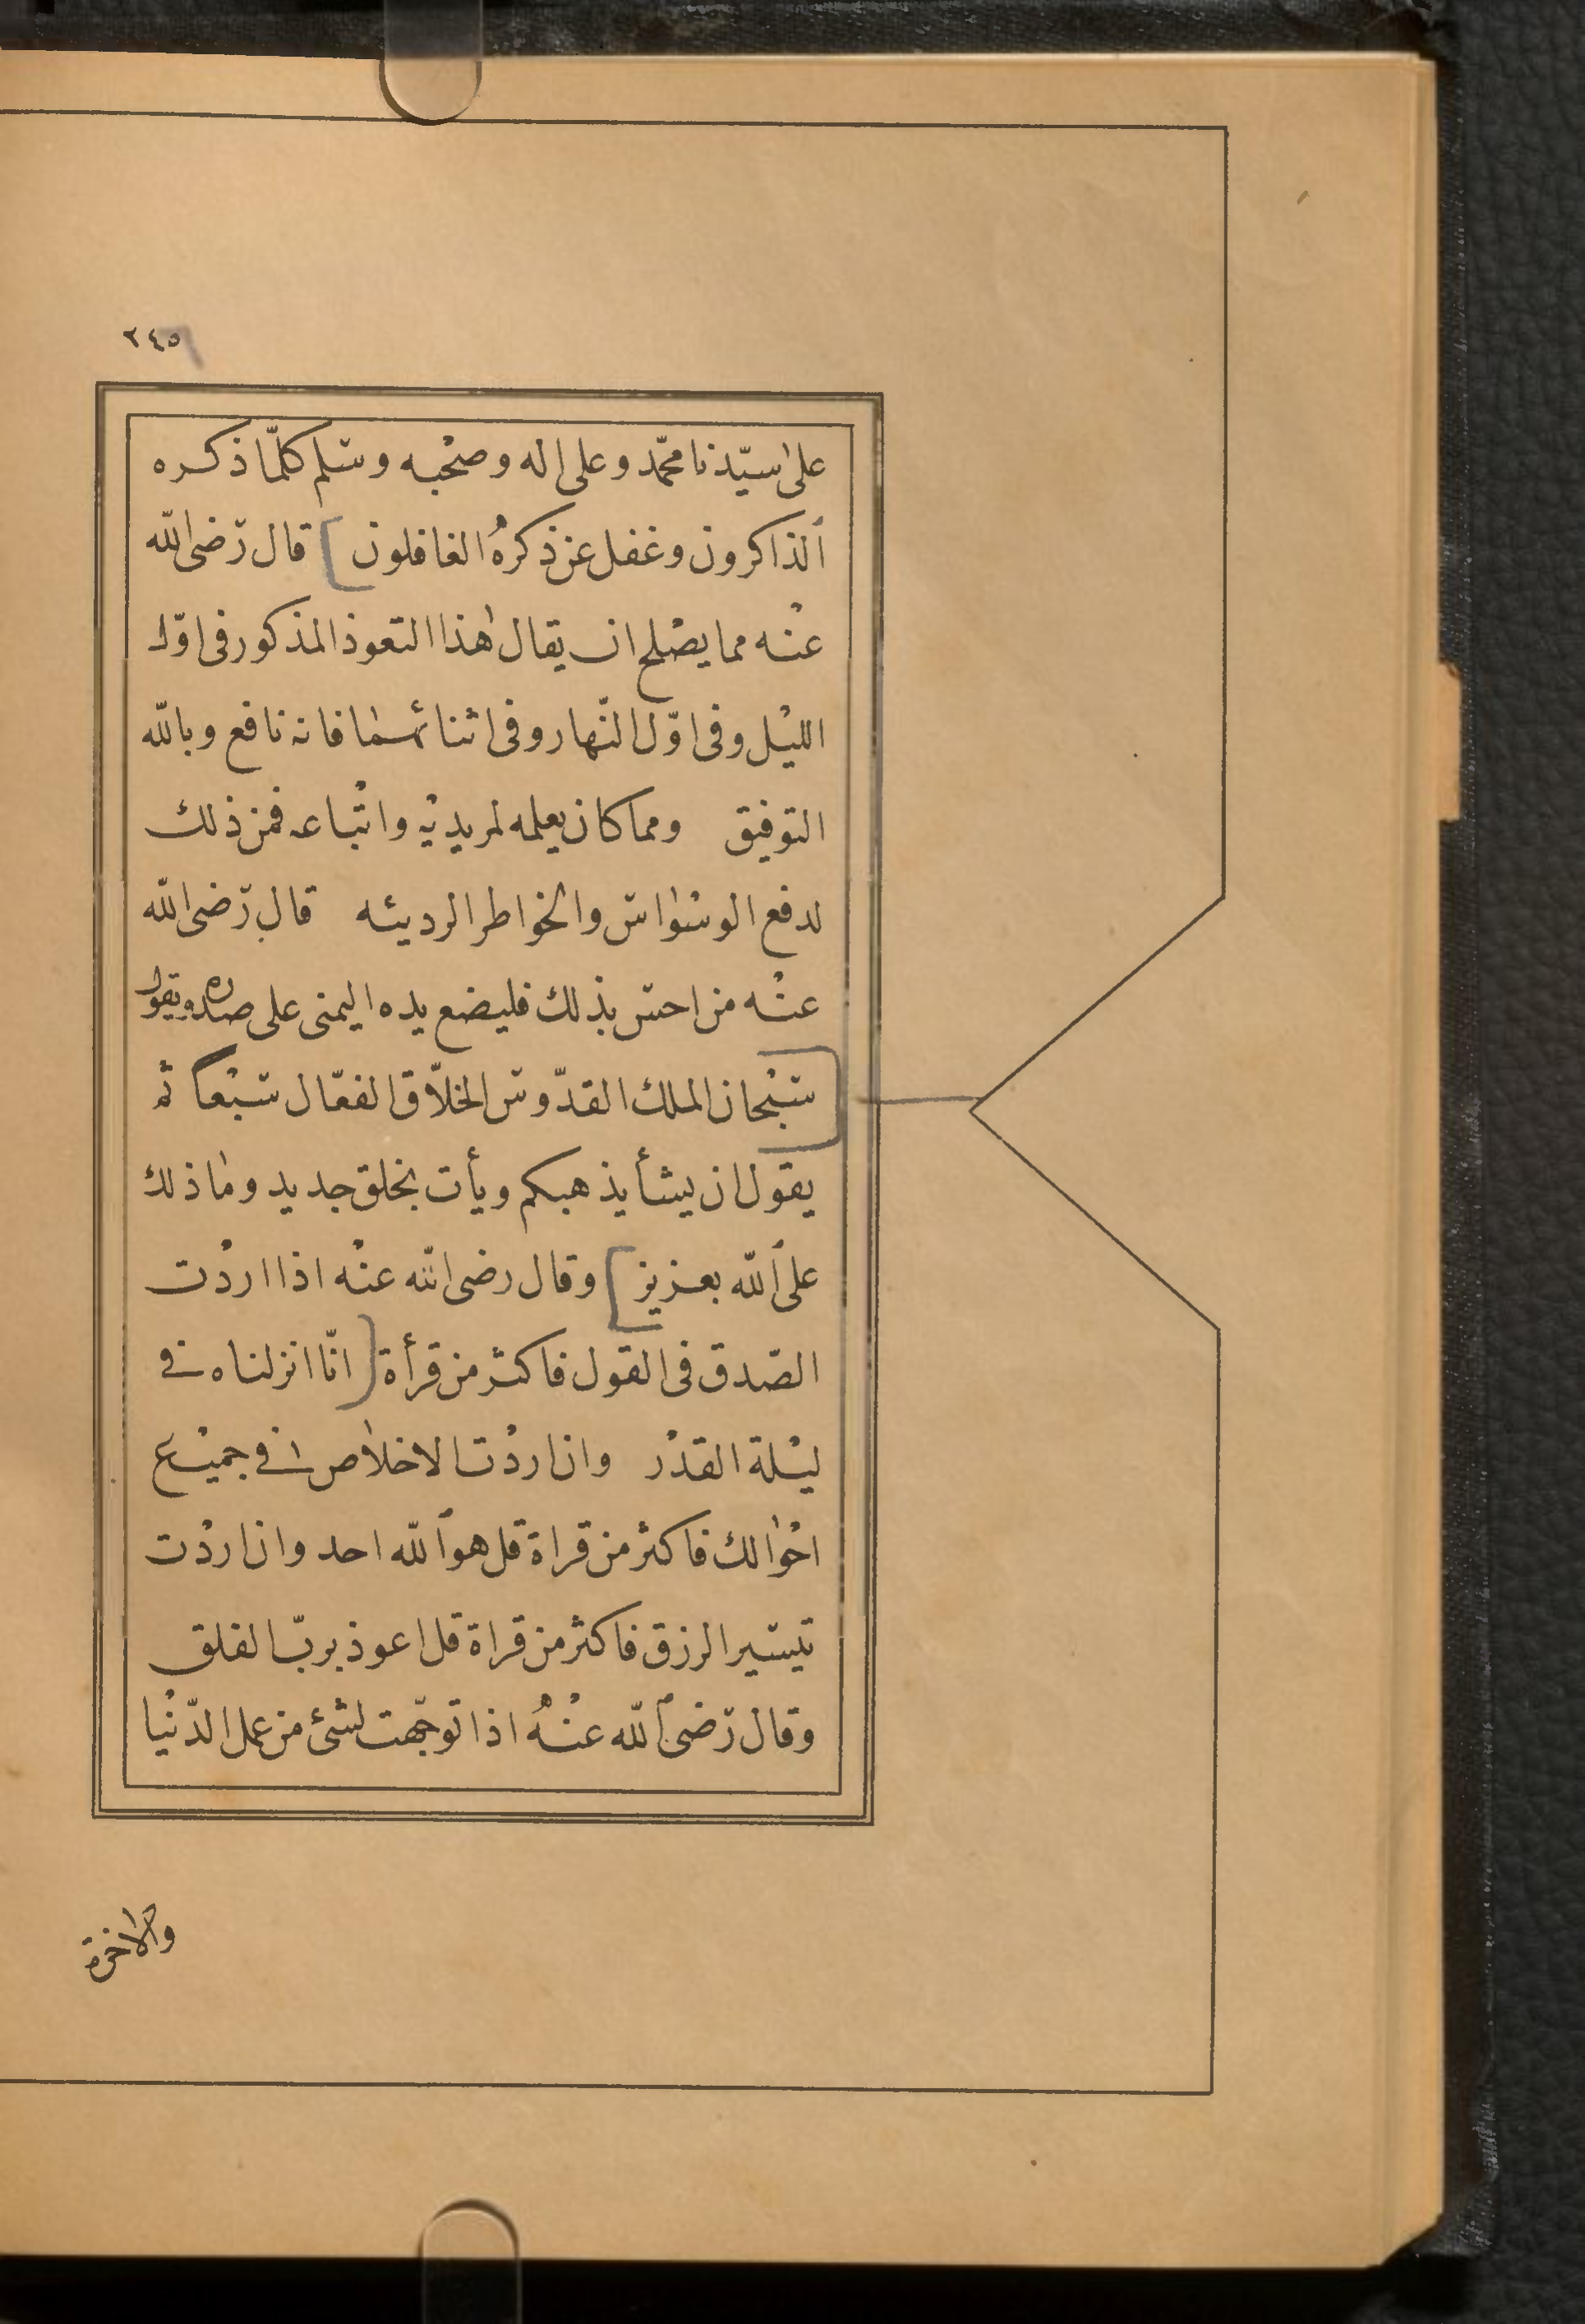 ٢٤٥
على سيّدنا محمّد وعلى اله وصحْبه وسلم كلّما ذكره
ٱلذاكرون وغفل عن ذكرهُ الغافلون ] قال رَضى الله
عنْه مما يصْلح ان يقال هٰذا التعوذ المذكور فى اوّل
الليْل وفى اوّل النّهار وفى اثنائهمٰا فانه نافع وبالله
التوفيق ومما كان يعلمه لمريديْه واتْباعه فمن ذلك
لدفع الوسْوٰاس والخواطر الرديئه قال رَضى الله
عنْه من احسّ بذلك فليضع يده اليمنى على صدره ويقول
[ سبْحان الملك القدّوس الخلّاق الفعّال سبْعاً ثم
يقول ان يشأ يذهبكم ويأت بخلق جديد ومٰا ذلك
على ٱلله بعزيز ] وقال رضى الله عنْه اذا اردْت
الصّدق فى القول فاكثر من قرأة ( انّا انزلناه فى
ليْلة القدْر وان اردْت الاخلاٰص فى جميْع
احْوٰالك فاكثر من قراة قل هو ٱلله احد وان اردْت
تيسير الرزق فاكثر من قراة قل اعوذ بربّ الفلق
وقال رَضى ٱلله عنْهُ اذا توجّهت لشئ من عمل الدّنْيا
والاخرة